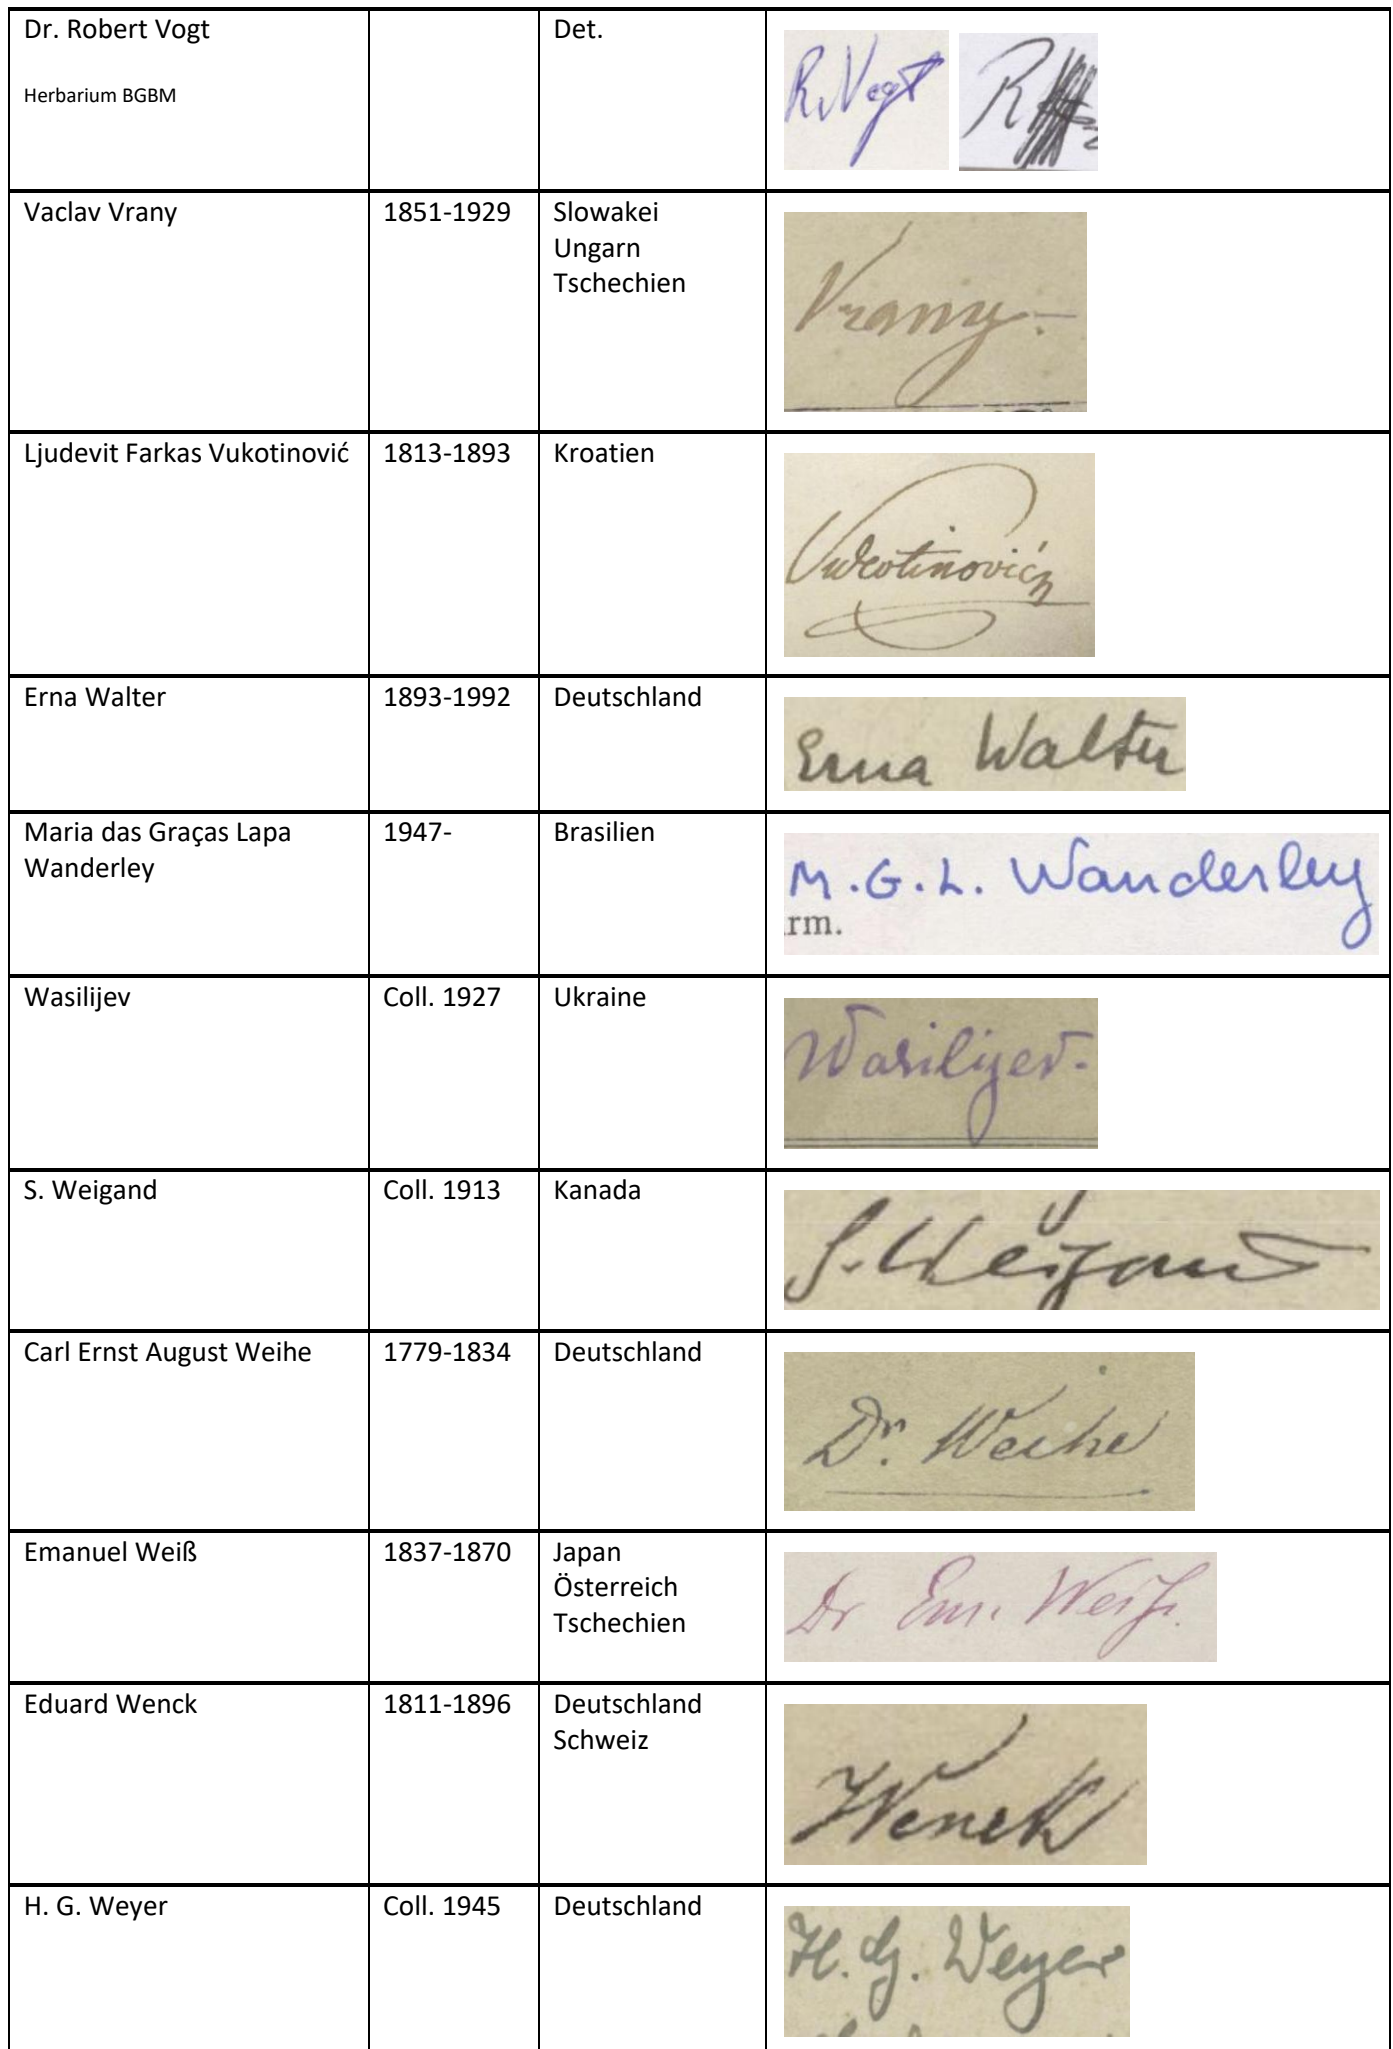 Dr. Robert Vogt
Det.
Herbarium BGBM
R. Vogt
Vaclav Vrany
1851-1929
Slowakei
Ungarn
Tschechien
Vrany
Ljudevit Farkas Vukotinović
1813-1893
Kroatien
Vukotinović
Erna Walter
1893-1992
Deutschland
Erna Walter
Maria das Graças Lapa
Wanderley
1947-
Brasilien
M. G. L. Wanderley
rm.
Wasilijev
Coll. 1927
Ukraine
Wasilijev.
S. Weigand
Coll. 1913
Kanada
S. Weigand
Carl Ernst August Weihe
1779-1834
Deutschland
Dr. Weihe
Emanuel Weiß
1837-1870
Japan
Österreich
Tschechien
Dr Em. Weiß.
Eduard Wenck
1811-1896
Deutschland
Schweiz
Wenck
H. G. Weyer
Coll. 1945
Deutschland
H. G. Weyer